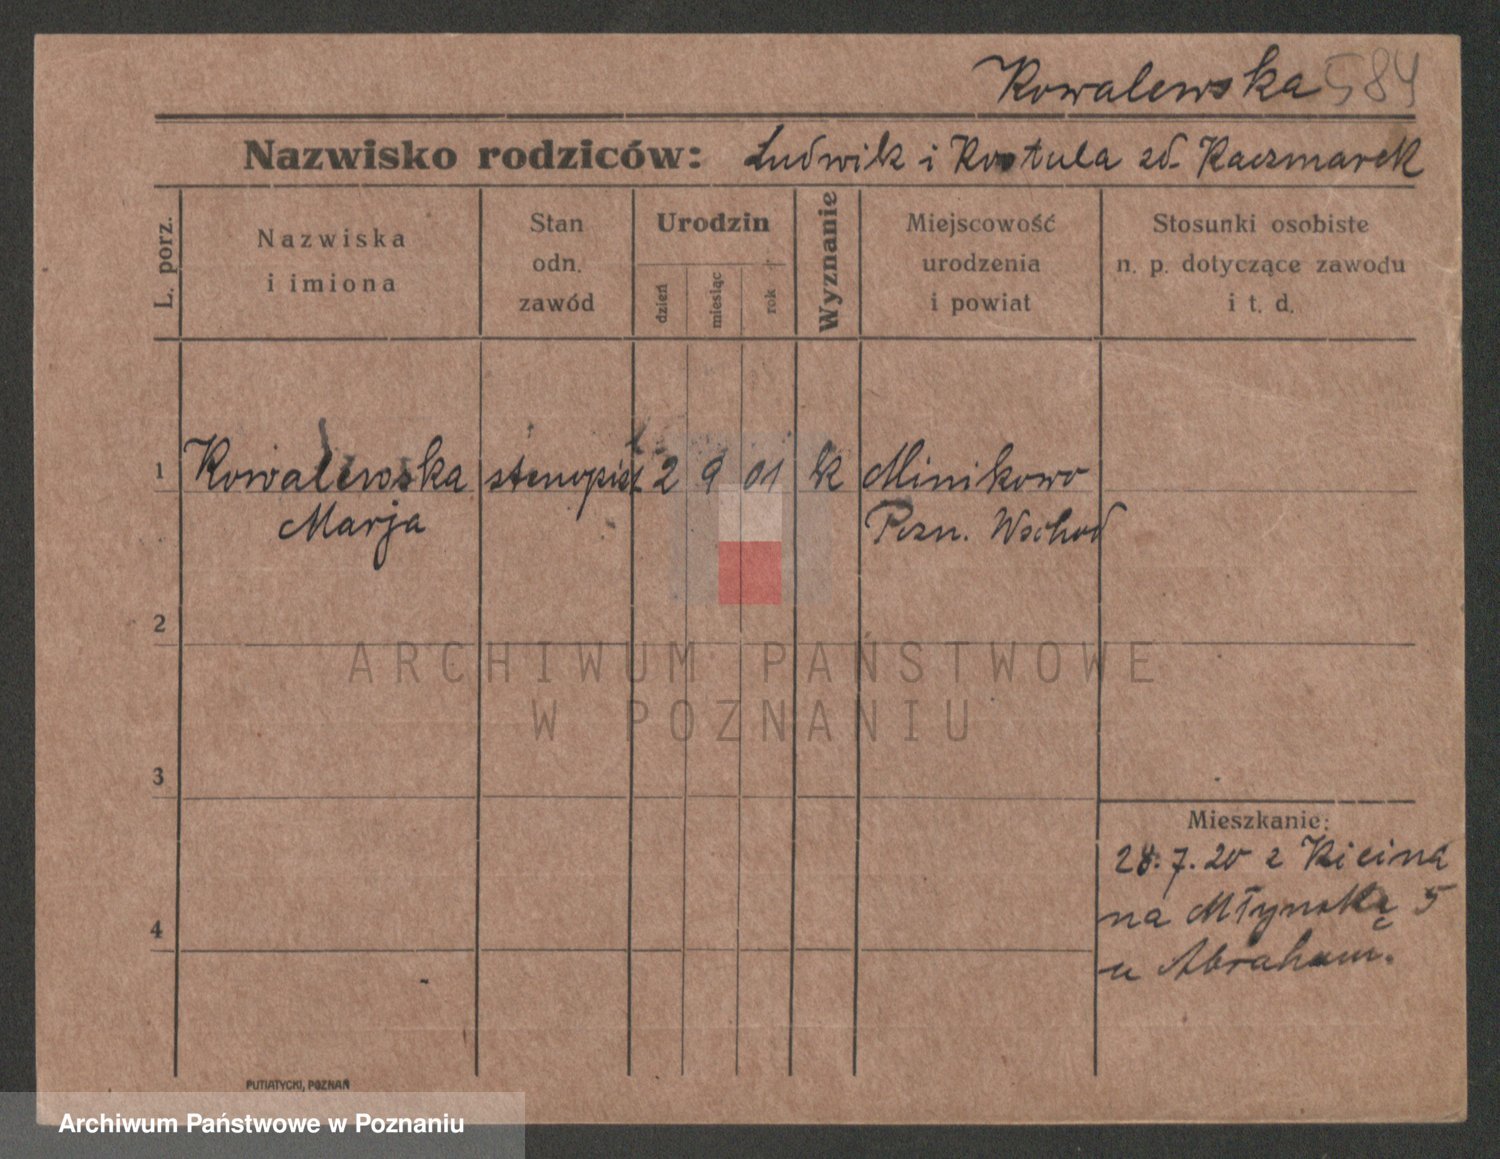 Kowalewska 584
Nazwisko rodziców: Ludwik i Rostula zd. Kaczmarek
L. porz.
Nazwiska
i imiona
Stan
odn.
zawód
Urodzin
dzień
miesiąc
rok
Wyznanie
Miejscowość
urodzenia
i powiat
Stosunki osobiste
n. p. dotyczące zawodu
i t. d.
1 Kowalewska stenopist. 2 9 01 k Minikowo
Marja Pozn. Wschod
2
ARCHIWUM PAŃSTWOWE
W POZNANIU
3
Mieszkanie:
28.7.20 z Kicina
na Młynską 5
u Abraham.
4
PUTIATYCKI, POZNAŃ
Archiwum Państwowe w Poznaniu